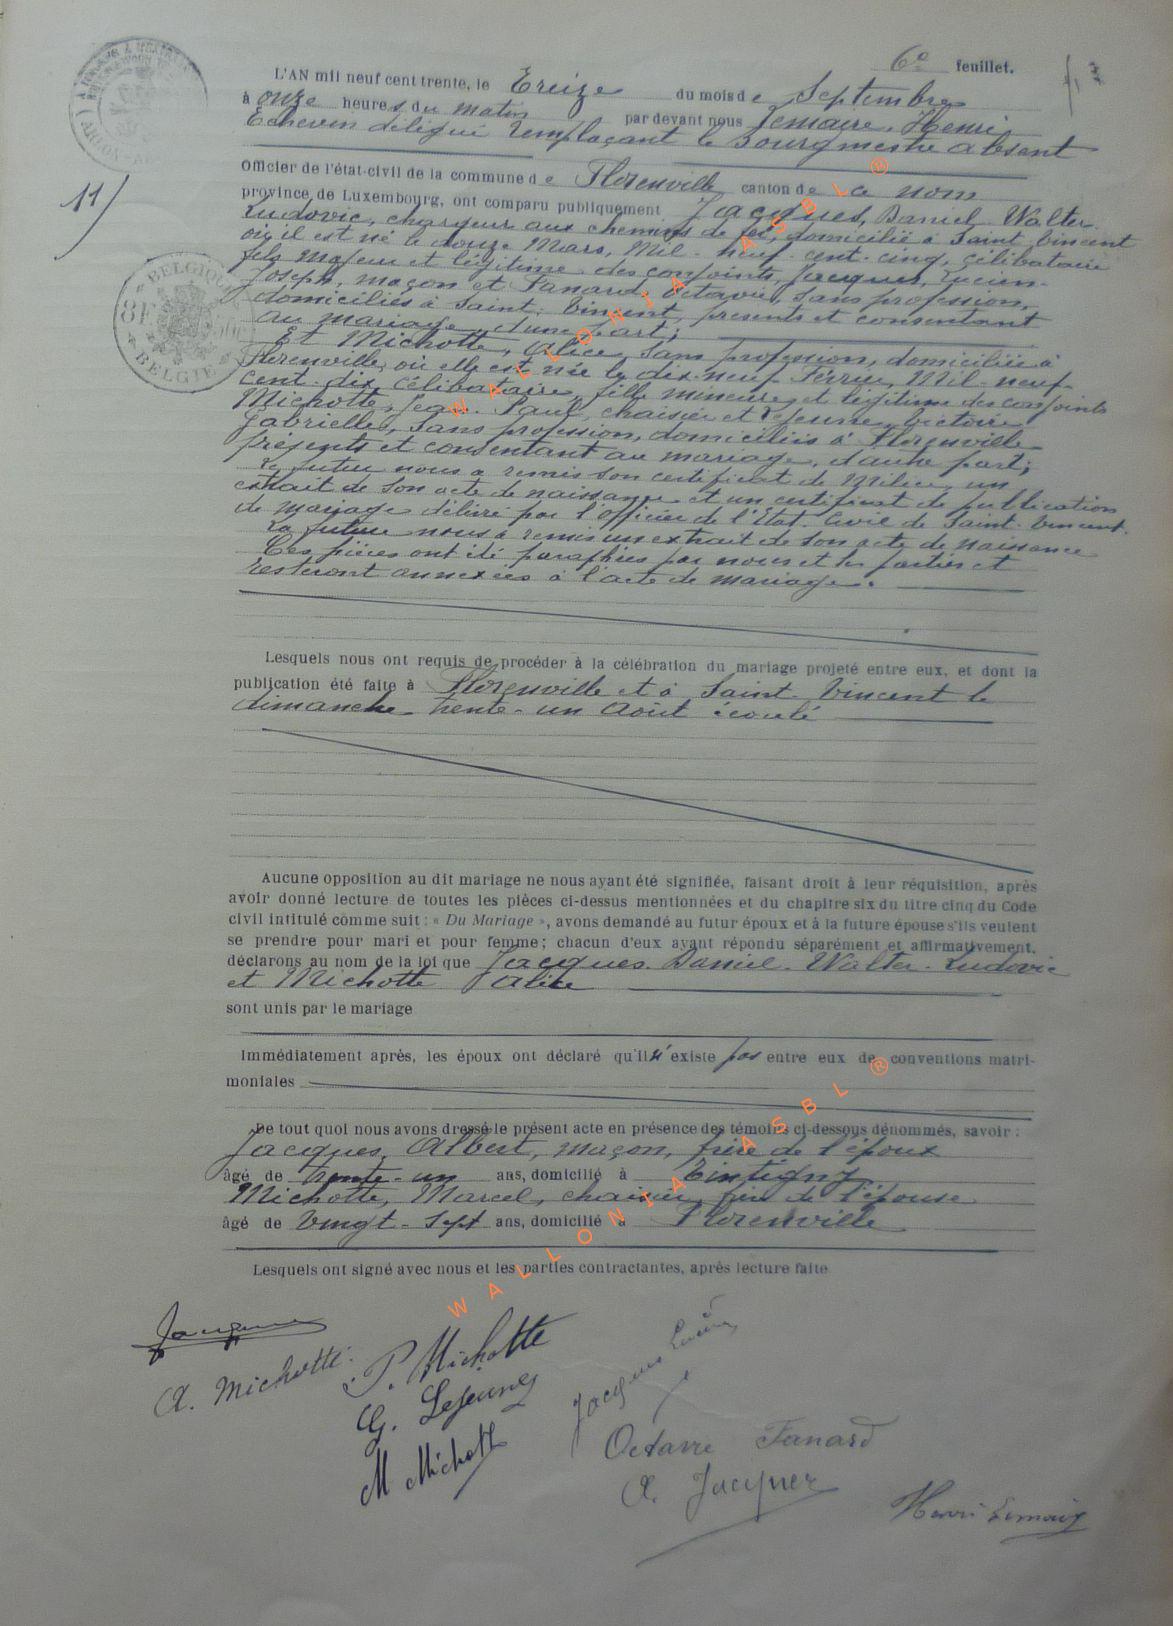 6e feuillet.
L'AN mil neuf cent trente, le Treize du mois de Septembre
à onze heures du matin par devant nous Lemaire, Henri,
Echevin délégué remplaçant le Bourgmestre absent
Officier de l'état-civil de la commune de Florenville canton de ce nom
11/
province de Luxembourg, ont comparu publiquement Jacques, Daniel-Walter-
Ludovic, chargeur aux chemins de fer, domicilié à Saint-Vincent
où il est né le douze Mars, Mil-neuf-cent-cinq, célibataire
fils majeur et légitime des conjoints, Jacques, Lucien-
Joseph, maçon et Fanard, Octavie, sans profession,
domiciliés à Saint-Vincent, présents et consentant
au mariage, d'une part;
Et Michotte, Alice, sans profession, domiciliée à
Florenville, où elle est née le dix-neuf Février, Mil-neuf-
cent-dix, célibataire, fille mineure et légitime des conjoints
Michotte, Jean-Paul, chaisier et Lejeune, Victoire
Gabrielle, sans profession, domiciliés à Florenville
présents et consentant au mariage, d'autre part;
Le futur nous a remis son certificat de Milice, un
extrait de son acte de naissance et un certificat de publication
de mariage délivré par l'officier de l'Etat-Civil de Saint-Vincent.
La future nous a remis un extrait de son acte de naissance
Ces pièces ont été paraphées par nous et les parties et
resteront annexées à l'acte de mariage.
BELGIQUE
BELGIE
Lesquels nous ont requis de procéder à la célébration du mariage projeté entre eux, et dont la
publication été faite à Florenville et à Saint-Vincent le
dimanche trente-un Août écoulé
Aucune opposition au dit mariage ne nous ayant été signifiée, faisant droit à leur réquisition, après
avoir donné lecture de toutes les pièces ci-dessus mentionnées et du chapitre six du titre cinq du Code
civil intitulé comme suit : « Du Mariage », avons demandé au futur époux et à la future épouse s'ils veulent
se prendre pour mari et pour femme; chacun d'eux ayant répondu séparément et affirmativement,
déclarons au nom de la loi que Jacques, Daniel-Walter-Ludovic
et Michotte Alice
sont unis par le mariage
Immédiatement après, les époux ont déclaré qu'il n'existe pas entre eux de conventions matri-
moniales
De tout quoi nous avons dressé le présent acte en présence des témoins ci-dessous dénommés, savoir :
Jacques, Albert, maçon, frère de l'époux
âgé de trente-un ans, domicilié à Tintigny
Michotte, Marcel, chaisier, frère de l'épouse
âgé de Vingt-sept ans, domicilié à Florenville
Lesquels ont signé avec nous et les parties contractantes, après lecture faite
Jacques
A. Michotte
P. Michotte
G. Lejeune
M Michotte
Jacques Lucien
Octavie Fanard
A. Jacques
Henri Lemaire
WALLONIA ASBL ®
WALLONIA ASBL ®